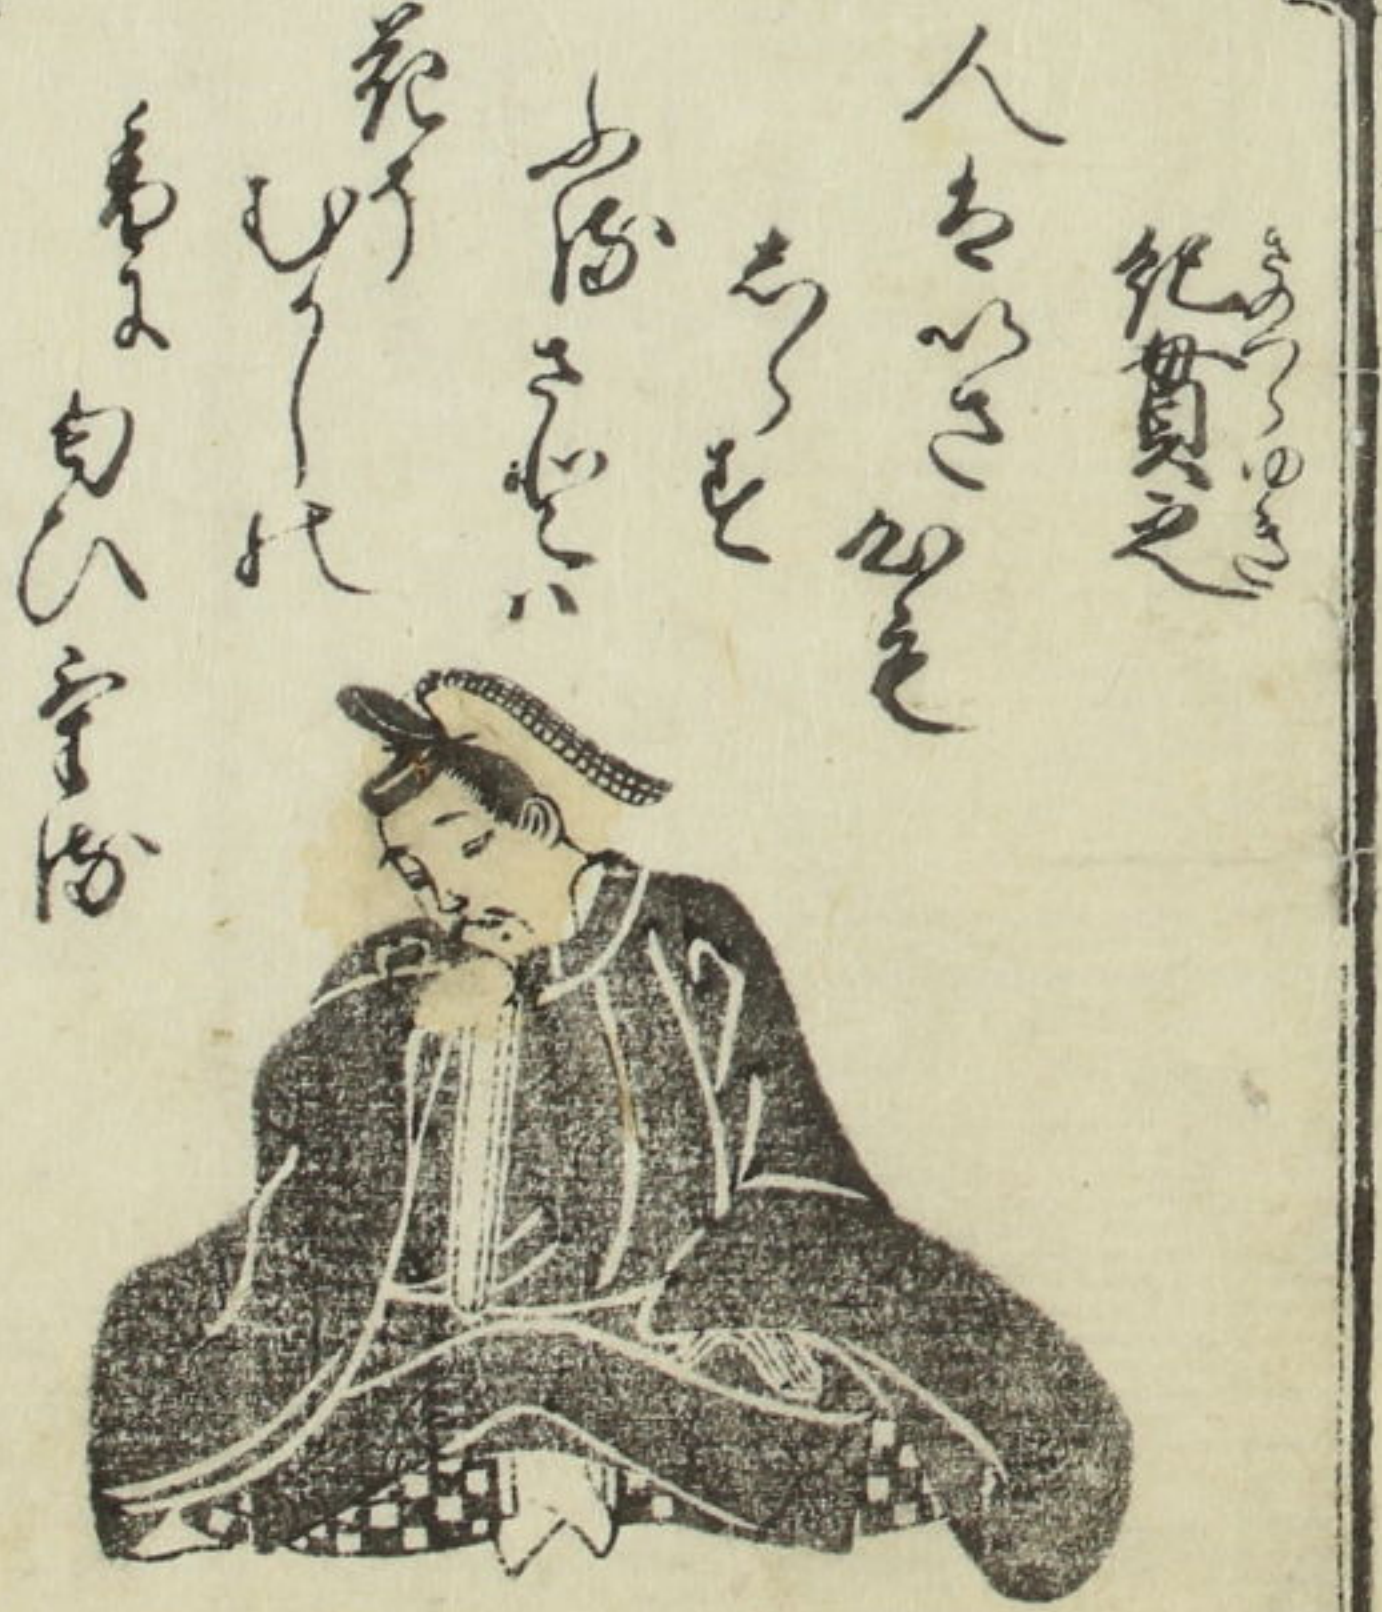 きのつらゆき
紀貫之
人はいさ
心も
しらす
ふるさとハ
花そ
むかしの
香に
匂ひける